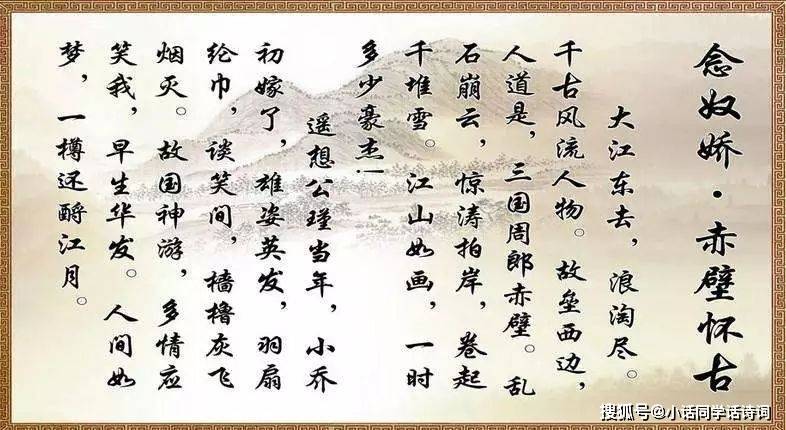 念奴娇·赤壁怀古
大江东去，浪淘尽。
千古风流人物。故垒西边，
人道是，三国周郎赤壁。乱
石崩云，惊涛拍岸，卷起
千堆雪。江山如画，一时
多少豪杰！
遥想公瑾当年，小乔
初嫁了，雄姿英发，羽扇
纶巾，谈笑间，樯橹灰飞
烟灭。故国神游，多情应
笑我，早生华发。人间如
梦，一樽还酹江月。
搜狐号@小话同学话诗词